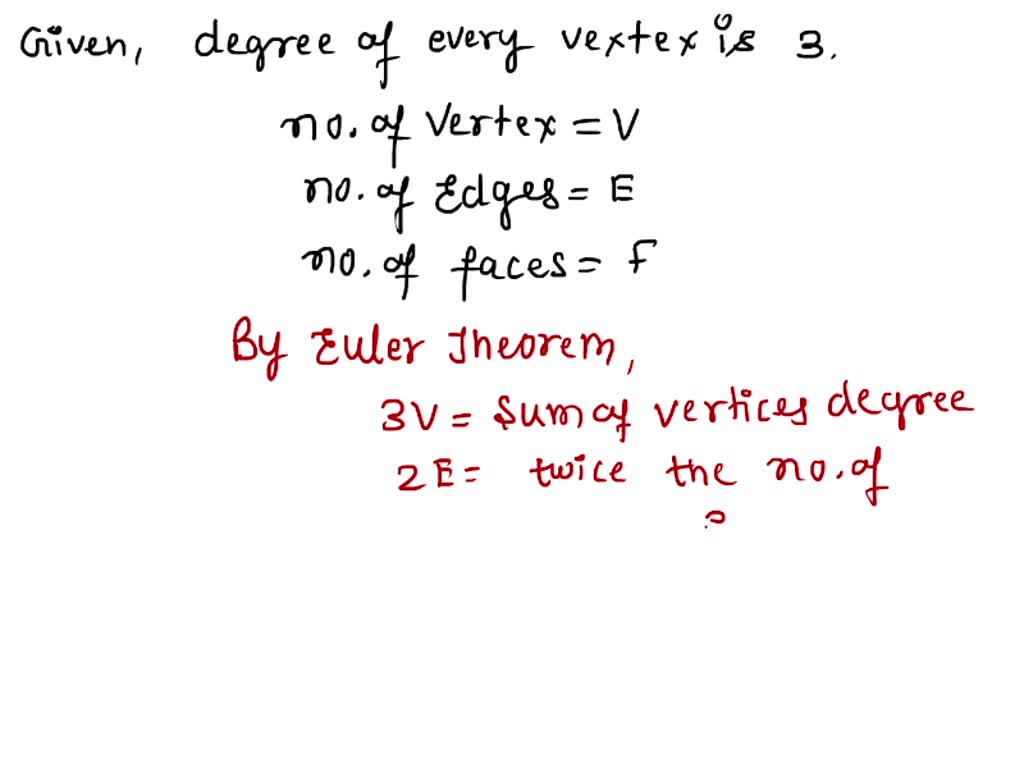 Given, degree of every vextex is 3.
no. of Vertex = V
no. of Edges = E
no. of faces = F
By Euler Theorem,
3V = Sum of vertices degree
2E = twice the no. of